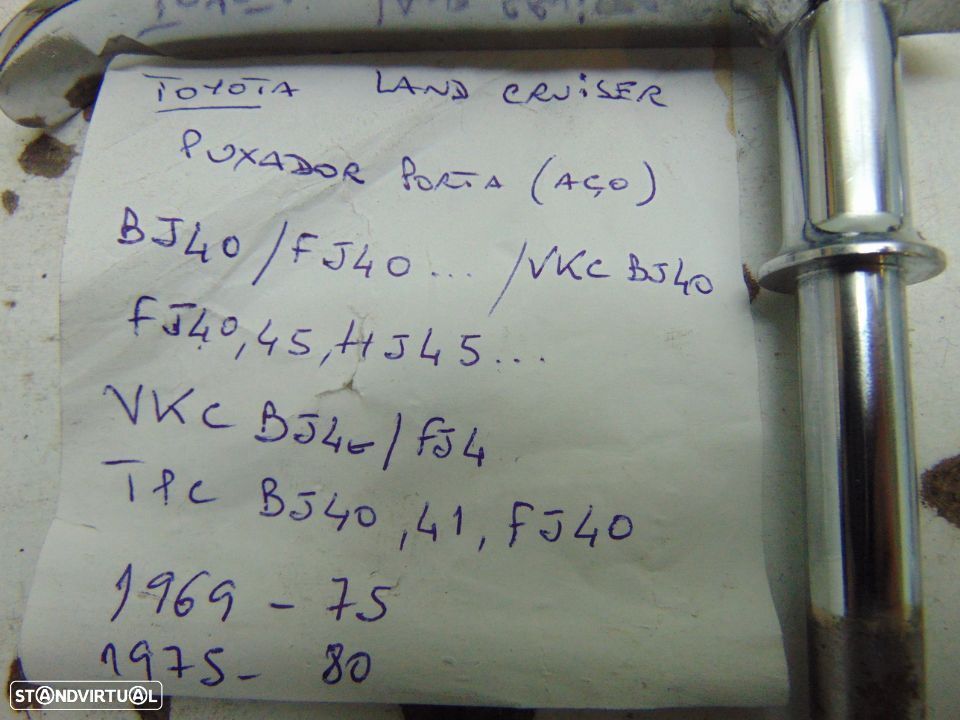 TOYOTA LAND CRUISER
PUXADOR PORTA (AÇO)
BJ40/FJ40... /VKC BJ40
FJ40,45,HJ45...
VKC BJ4-/FJ4
TPC BJ40,41,FJ40
1969 - 75
1975- 80
STANDVIRTUAL